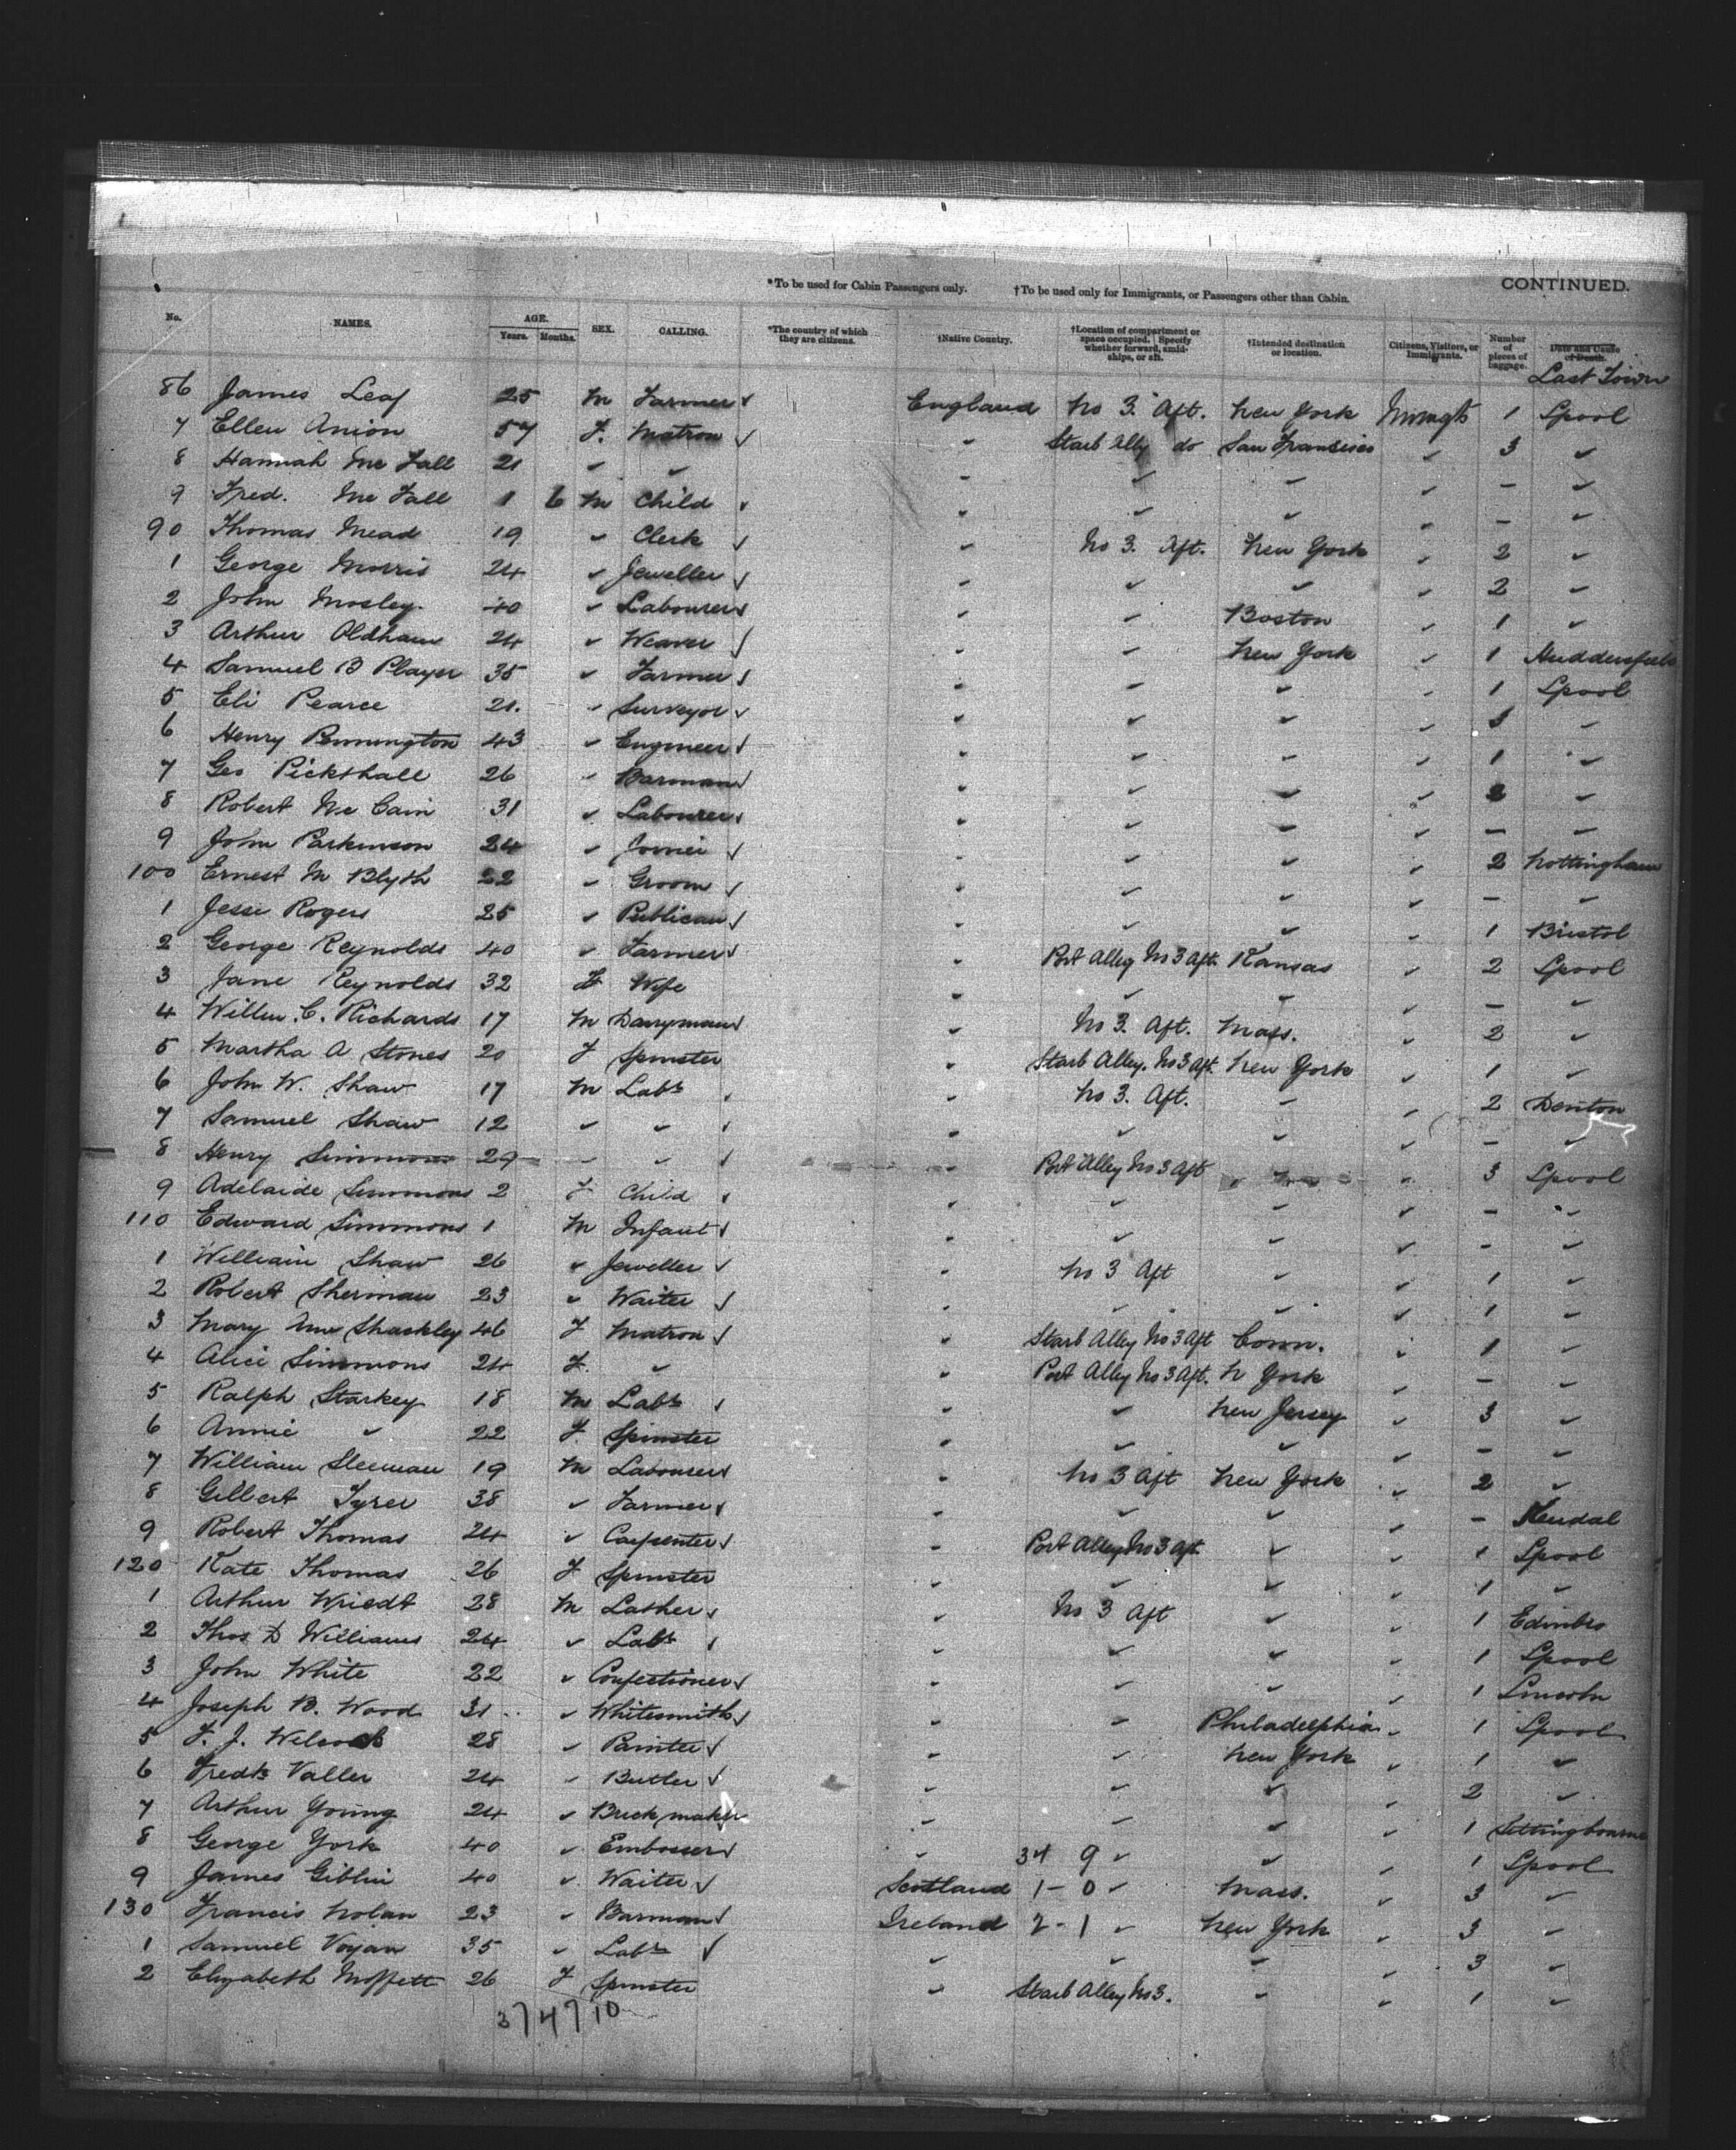 CONTINUED.
*To be used for Cabin Passengers only. †To be used only for Immigrants, or Passengers other than Cabin.
No. NAMES. AGE. Years. Months. SEX. CALLING. *The country of which they are citizens. †Native Country. †Location of compartment or space occupied. Specify whether forward, amidships, or aft. †Intended destination or location. Citizens, Visitors, or Immigrants. Number of pieces of baggage. Date and Cause of Death.
Last Town
86 James Leaf 25 M Farmer ✓ England No 3. Aft. New York 1 Lpool
7 Ellen Anion 57 F. Matron ✓ " Starb Alley do San Fransisco " 3 "
8 Hannah Mc Fall 21 " " " " " " - "
9 Fred. Mc Fall 1 6 M Child ✓ " " " " - "
90 Thomas Mead 19 " Clerk ✓ " No 3. Aft. New York " 2 "
1 George Morris 24 " Jeweller ✓ " " " " 2 "
2 John Mosley. 40 " Labourer ✓ " " Boston " 1 "
3 Arthur Oldham 24 " Weaver ✓ " " New York " 1 Huddersfield
4 Samuel B Player 35 " Farmer ✓ " " " " 1 Lpool
5 Eli Pearce 21. " Surveyor ✓ " " " " "
6 Henry Pennington 43 " Engineer ✓ " " " " 1 "
7 Geo Pickthall 26 " Barman ✓ " " " " 2 "
8 Robert Mc Cain 31 " Labourer ✓ " " " " - "
9 John Parkinson 24 " Joiner ✓ " " " " 2 Nottingham
100 Ernest M Blyth 22 " Groom ✓ " " " " - "
1 Jesse Rogers 25 " Publican ✓ " " " " 1 Bristol
2 George Reynolds 40 " Farmer ✓ " Port Alley No 3 Aft. Kansas " 2 Lpool
3 Jane Reynolds 32 F Wife " " " " - "
4 Willm. C. Richards 17 M Dairyman ✓ " No 3. Aft. Mass. " 2 "
5 Martha A Stones 20 F Spinster " Starb Alley. No 3 Aft. New York " 1 "
6 John W. Shaw 17 M Labr ✓ " No 3. Aft. " " 2 Denton
7 Samuel Shaw 12 " " ✓ " " " " - "
8 Henry Simmons 29 " " ✓ " Port Alley No 3 Aft " 3 Lpool
9 Adelaide Simmons 2 F Child ✓ " " " " - "
110 Edward Simmons 1 M Infant ✓ " " " " - "
1 William Shaw 26 " Jeweller ✓ " No 3 Aft " " 1 "
2 Robert Sherman 23 " Waiter ✓ " " " " 1 "
3 Mary Ann Shackley 46 F Matron ✓ " Starb Alley No 3 Aft Conn. " 1 "
4 Alice Simmons 24 F. " " Port Alley No 3 Aft. N York " - "
5 Ralph Starkey 18 M Labr ✓ " " New Jersey " 3 "
6 Annie " 22 F. Spinster " " " " - "
7 William Sleeman 19 M Labourer ✓ " No 3 Aft New York " 2 "
8 Gilbert Tyrer 38 " Farmer ✓ " " " " - Kendal
9 Robert Thomas 24 " Carpenter ✓ " Port Alley No 3 Aft. " " 1 Lpool
120 Kate Thomas 26 F Spinster " " " " 1 "
1 Arthur Wriedt 28 M Lather ✓ " No 3 Aft " " 1 Edinbro
2 Thos D Williams 24 " Labr ✓ " " " " 1 Lpool
3 John White 22 " Confectioner ✓ " " " " 1 Lincoln
4 Joseph B. Wood 31 " Whitesmith ✓ " " Philadelphia " 1 Lpool
5 F. J. Wilcock 28 " Painter ✓ " " New York " 1 "
6 Fredk Valler 24 " Butler ✓ " " " " 2 "
7 Arthur Young 24 " Brickmaker " " " " 1 Sittingbourne
8 George York 40 " Embosser ✓ " 34 9 " " " 1 Lpool
9 James Giblin 40 " Waiter ✓ Scotland 1-0 " Mass. " 3 "
130 Francis Nolan 23 " Barman ✓ Ireland 2-1 " New York " 3 "
1 Samuel Vogan 35 " Labr ✓ " " " " 3 "
2 Elizabeth Moffett 26 F Spinster " Starb Alley No 3. " " 1 "
374710